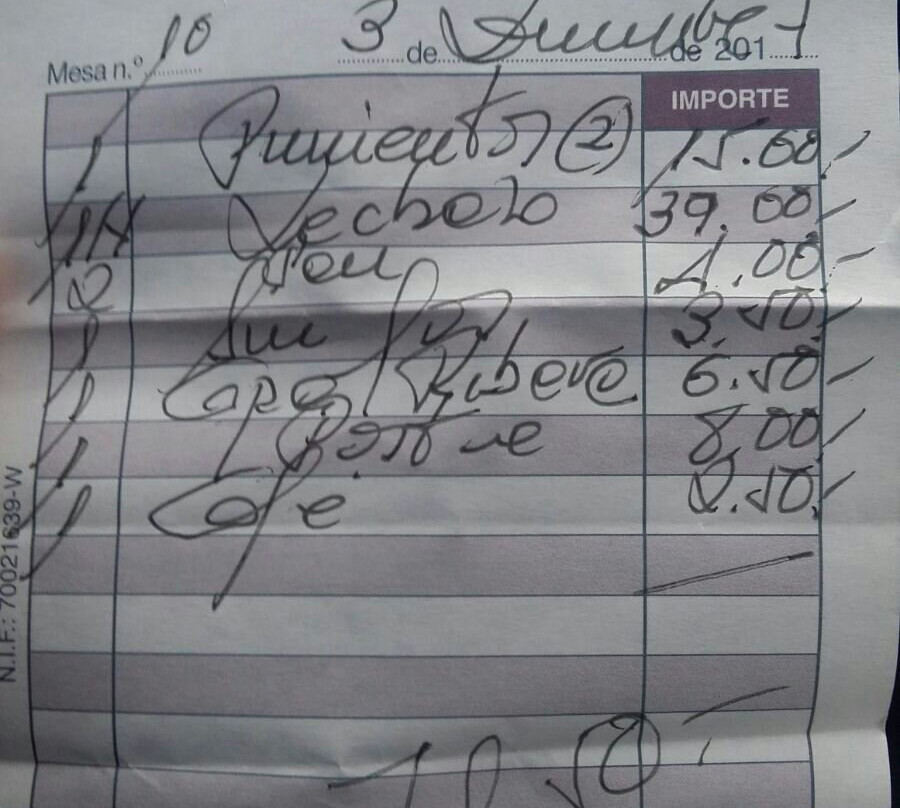 Mesa n.º 10 3 de Diciembre de 2017
IMPORTE
1 Pimientos (2) 15.00
1/4 Lechazo 39.00
2 Pan 4.00
1 3.50
1 Copa Ribera 6.50
1 Postre 8.00
1 Cafe 2.50
78.50
N.I.F.: 70021639-W